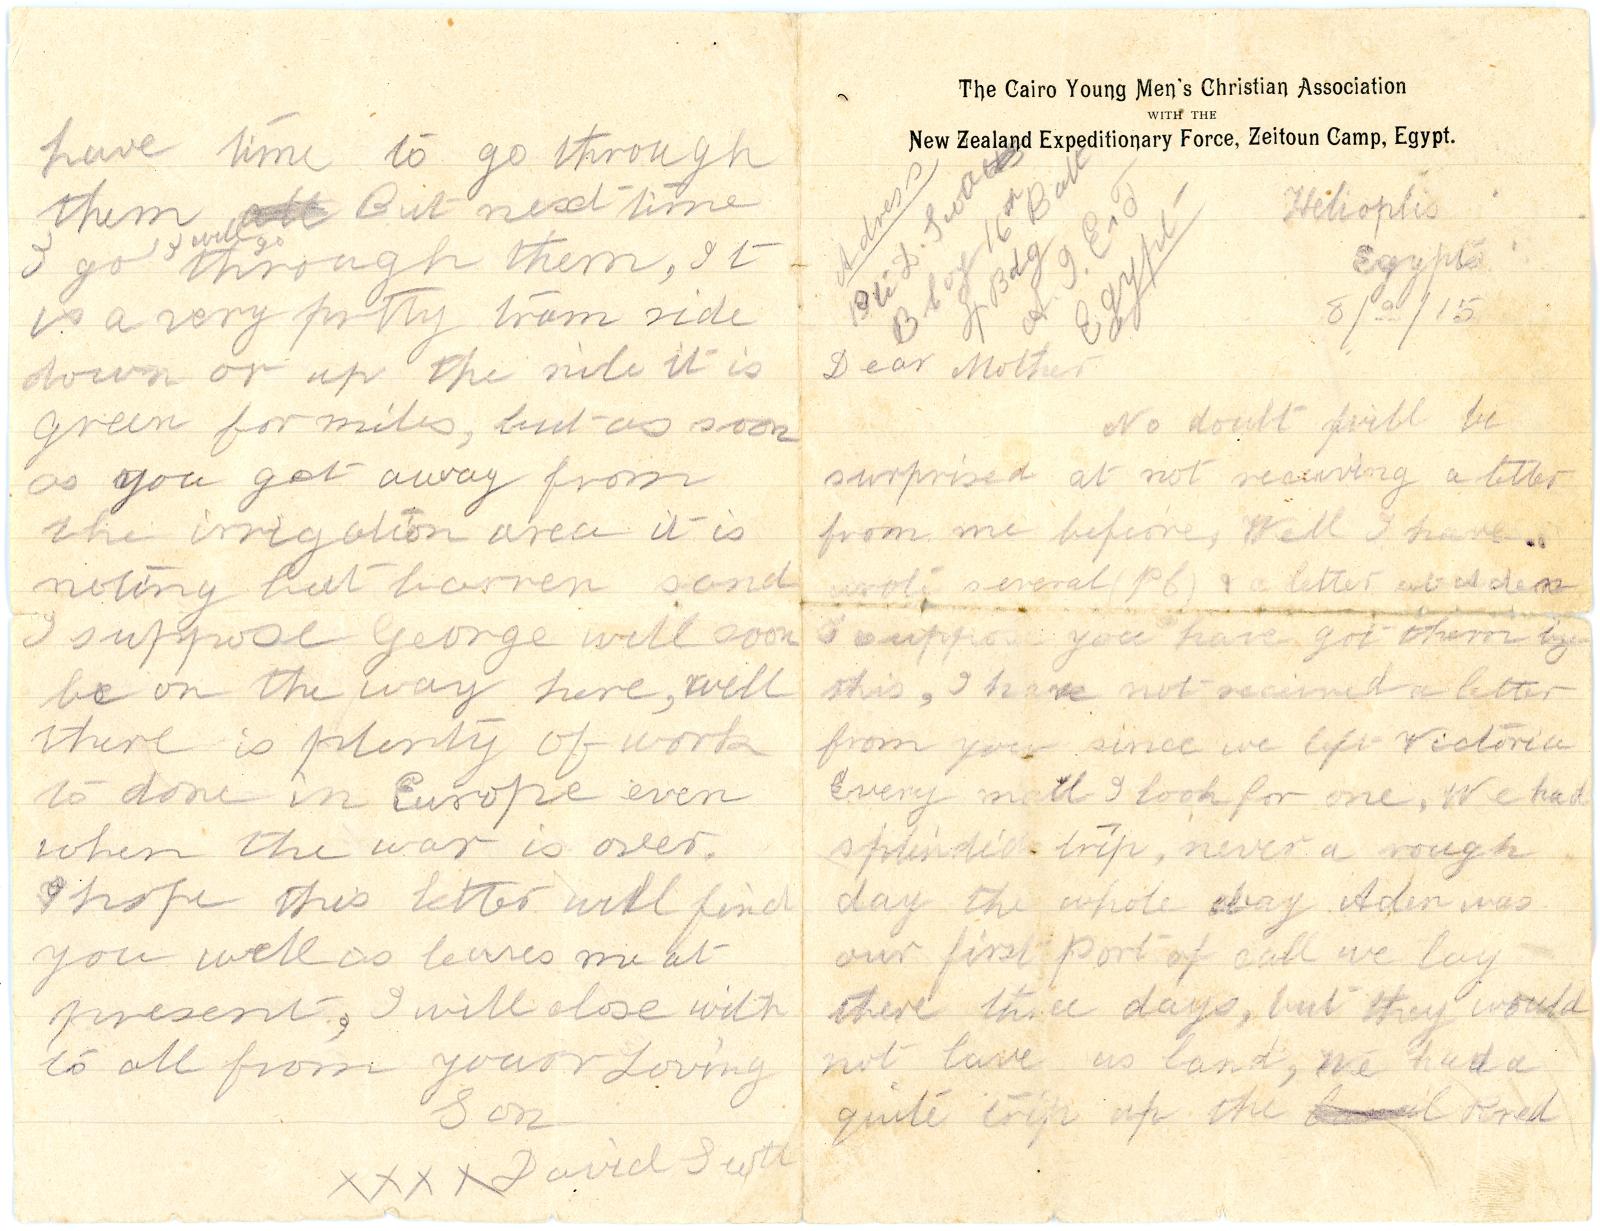 The Cairo Young Men's Christian Association
WITH THE
New Zealand Expeditionary Force, Zeitoun Camp, Egypt.
Adress
Pte D. Scott
B Coy 16th Batt
4 Bdg
A. I. E. F
Egypt
Helioptis
Egypt
8/9/15
Dear Mother
No doubt will be
surprised at not receiving a letter
from me before, Well I have
wrote several (P6) & a letter at Aden
I suppose you have got them by
this, I have not recieved a letter
from you since we left Victoria
Every mall I look for one, We had
splindid trip, never a rough
day the whole way Aden was
our first Port of call we lay
there three days, but they would
not lave us land, We had a
quite trip up the red
have time to go through
them all But next time
I go I will go through them, It
is a very pretty tram ride
down or up the nile it is
green for miles, but as soon
as you get away from
the irrigation area it is
noting but barren sand
I suppose George will soon
be on the way here, well
there is plenty of work
to done in Europe even
when the war is over.
I hope this letter will find
you well as leaves me at
present, I will close with
to all from your Loving
Son
xxxx David Scott